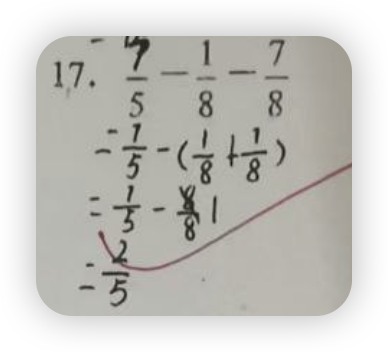 17. 7/5 − 1/8 − 7/8
= 7/5 − (1/8 + 7/8)
= 7/5 − 1
= 2/5